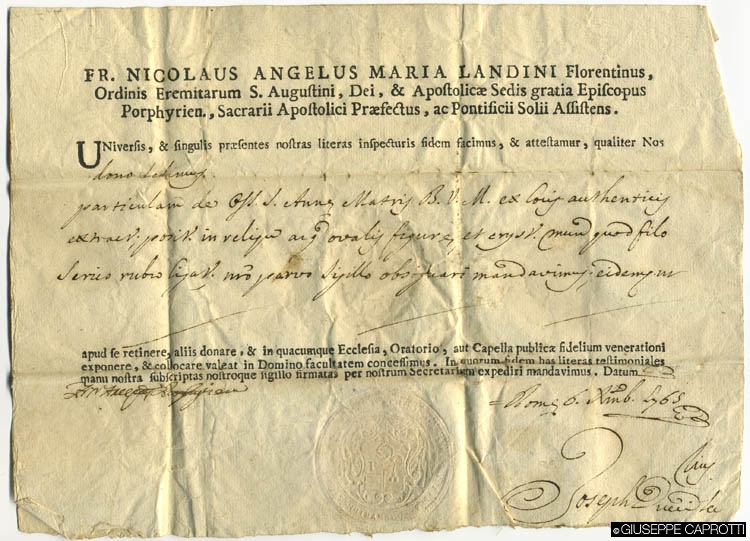 FR. NICOLAUS ANGELUS MARIA LANDINI Florentinus,
Ordinis Eremitarum S. Augustini, Dei, & Apostolicæ Sedis gratia Episcopus
Porphyrien., Sacrarii Apostolici Præfectus, ac Pontificii Solii Assistens.
UNiversis, & singulis præsentes nostras literas inspecturis fidem facimus, & attestamur, qualiter Nos
dono dedimus
particulam de Oss. S. Annę Matris B. V. M. ex locis authenticis
extract. posit. in reliqu ovalis figurę, et cryst. mun. quod filo
serico rubro ligat. nro parvo sigillo obsignari mandavimus, eidem ut
apud se retinere, aliis donare, & in quacumque Ecclesia, Oratorio, aut Capella publicæ fidelium venerationi
exponere, & collocare valeat in Domino facultatem concessimus. In quorum fidem has literas testimoniales
manu nostra subscriptas nostroque sigillo firmatas per nostrum Secretarium expediri mandavimus. Datum
Romę 6. Xmb. 1763
Joseph
©GIUSEPPE CAPROTTI